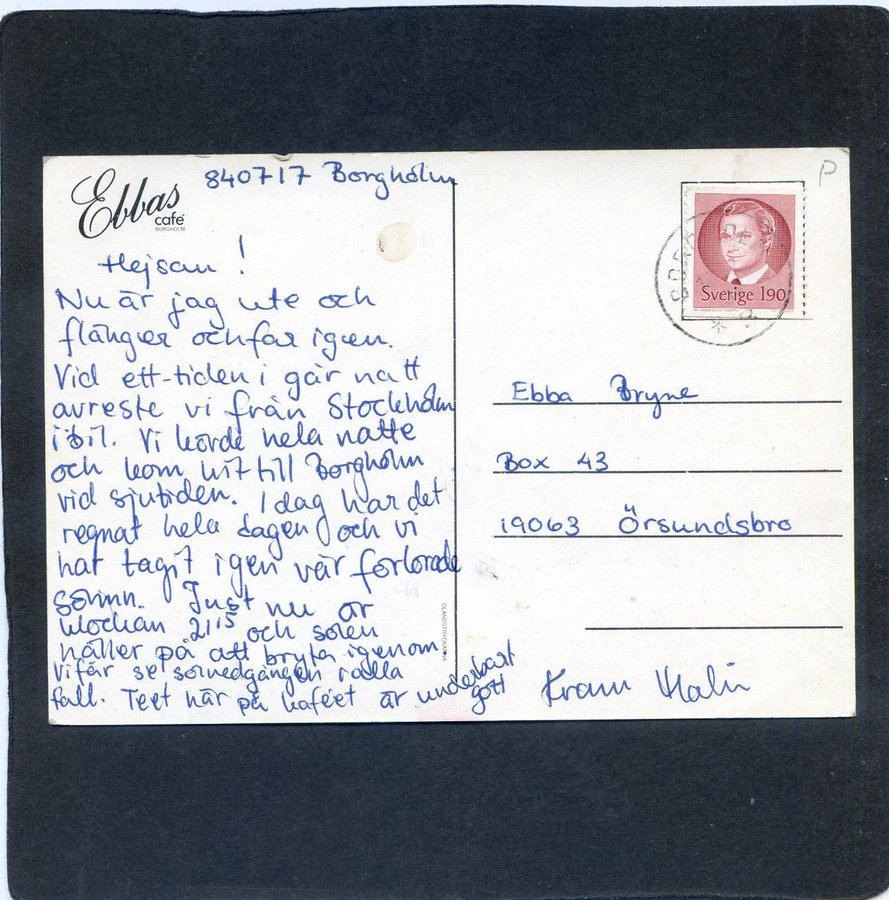 Ebbas
café
BORGHOLM
840717 Borgholm
Hejsan!
Nu är jag ute och
flänger och far igen.
Vid ett-tiden i går natt
avreste vi från Stockholm
i bil. Vi körde hela natte
och kom hit till Borgholm
vid sjutiden. I dag har det
regnat hela dagen och vi
har tagit igen vår förlorade
sömn. Just nu är
klockan 21 15 och solen
håller på att bryta igenom
Vi får se solnedgången i alla
fall. Teet här på kaféet är underbart
gott
Kram Malin
ÖLANDSTRYCKARNA
P
BORG
Sverige 190
Ebba Bryne
Box 43
19063 Örsundsbro